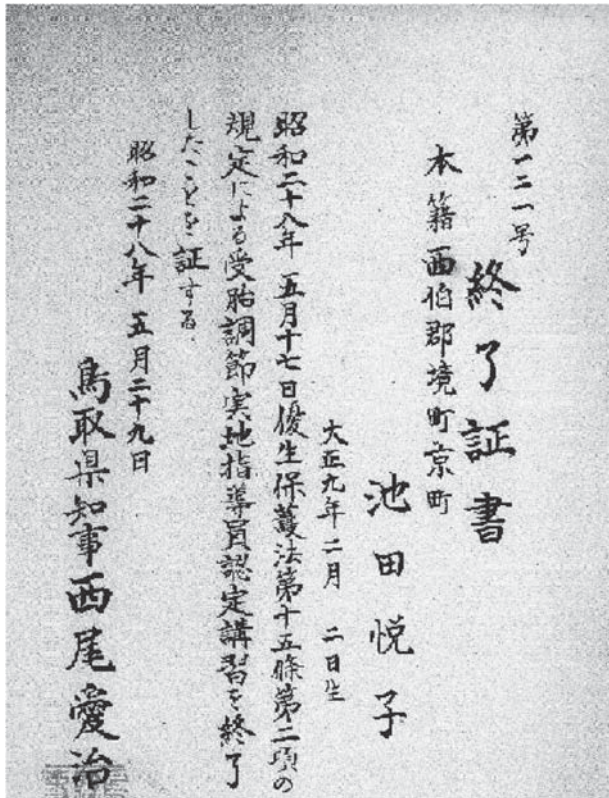 第一二一号
終了証書
本籍西伯郡境町京町
池田悦子
大正九年二月 二日生
昭和二十八年 五月十七日優生保護法第十五條第二項の
規定による受胎調節実地指導員認定講習を終了
したことを証する
昭和二十八年 五月二十九日
鳥取県知事西尾愛治